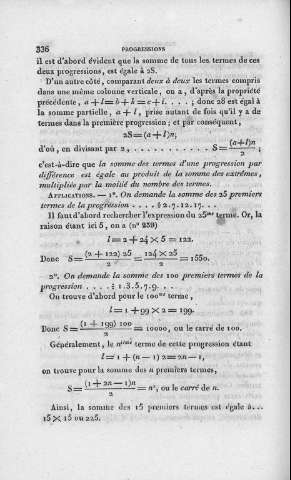 336 PROGRESSIONS
il est d'abord évident que la somme de tous les termes de ces
deux progressions, est égale à 2S.
D'un autre côté, comparant deux à deux les termes compris
dans une même colonne verticale, on a, d'après la propriété
précédente, a + l = b + k = c + i. . . . ; donc 2S est égal à
la somme partielle, a + l, prise autant de fois qu'il y a de
termes dans la première progression; et par conséquent,
2S = (a + l)n;
d'où, en divisant par 2, . . . . . . . . . . . S = (a+l)n / 2 ;
c'est-à-dire que la somme des termes d'une progression par
différence est égale au produit de la somme des extrêmes,
multipliée par la moitié du nombre des termes.
APPLICATIONS. — 1°. On demande la somme des 25 premiers
termes de la progression . . . . ÷ 2.7.12.17. . .
Il faut d'abord rechercher l'expression du 25me terme. Or, la
raison étant ici 5, on a (n° 239)
l = 2 + 24 × 5 = 122.
Donc S = (2 + 122) 25 / 2 = 124 × 25 / 2 = 1550.
2°. On demande la somme des 100 premiers termes de la
progression . . . . ÷ 1.3.5.7.9. . .
On trouve d'abord pour le 100me terme,
l = 1 + 99 × 2 = 199.
Donc S = (1 + 199) 100 / 2 = 10000, ou le carré de 100.
Généralement, le nieme terme de cette progression étant
l = 1 + (n — 1) 2 = 2n — 1,
on trouve pour la somme des n premiers termes,
S = (1 + 2n — 1)n / 2 = n², ou le carré de n.
Ainsi, la somme des 15 premiers termes est égale à...
15 × 15 ou 225.